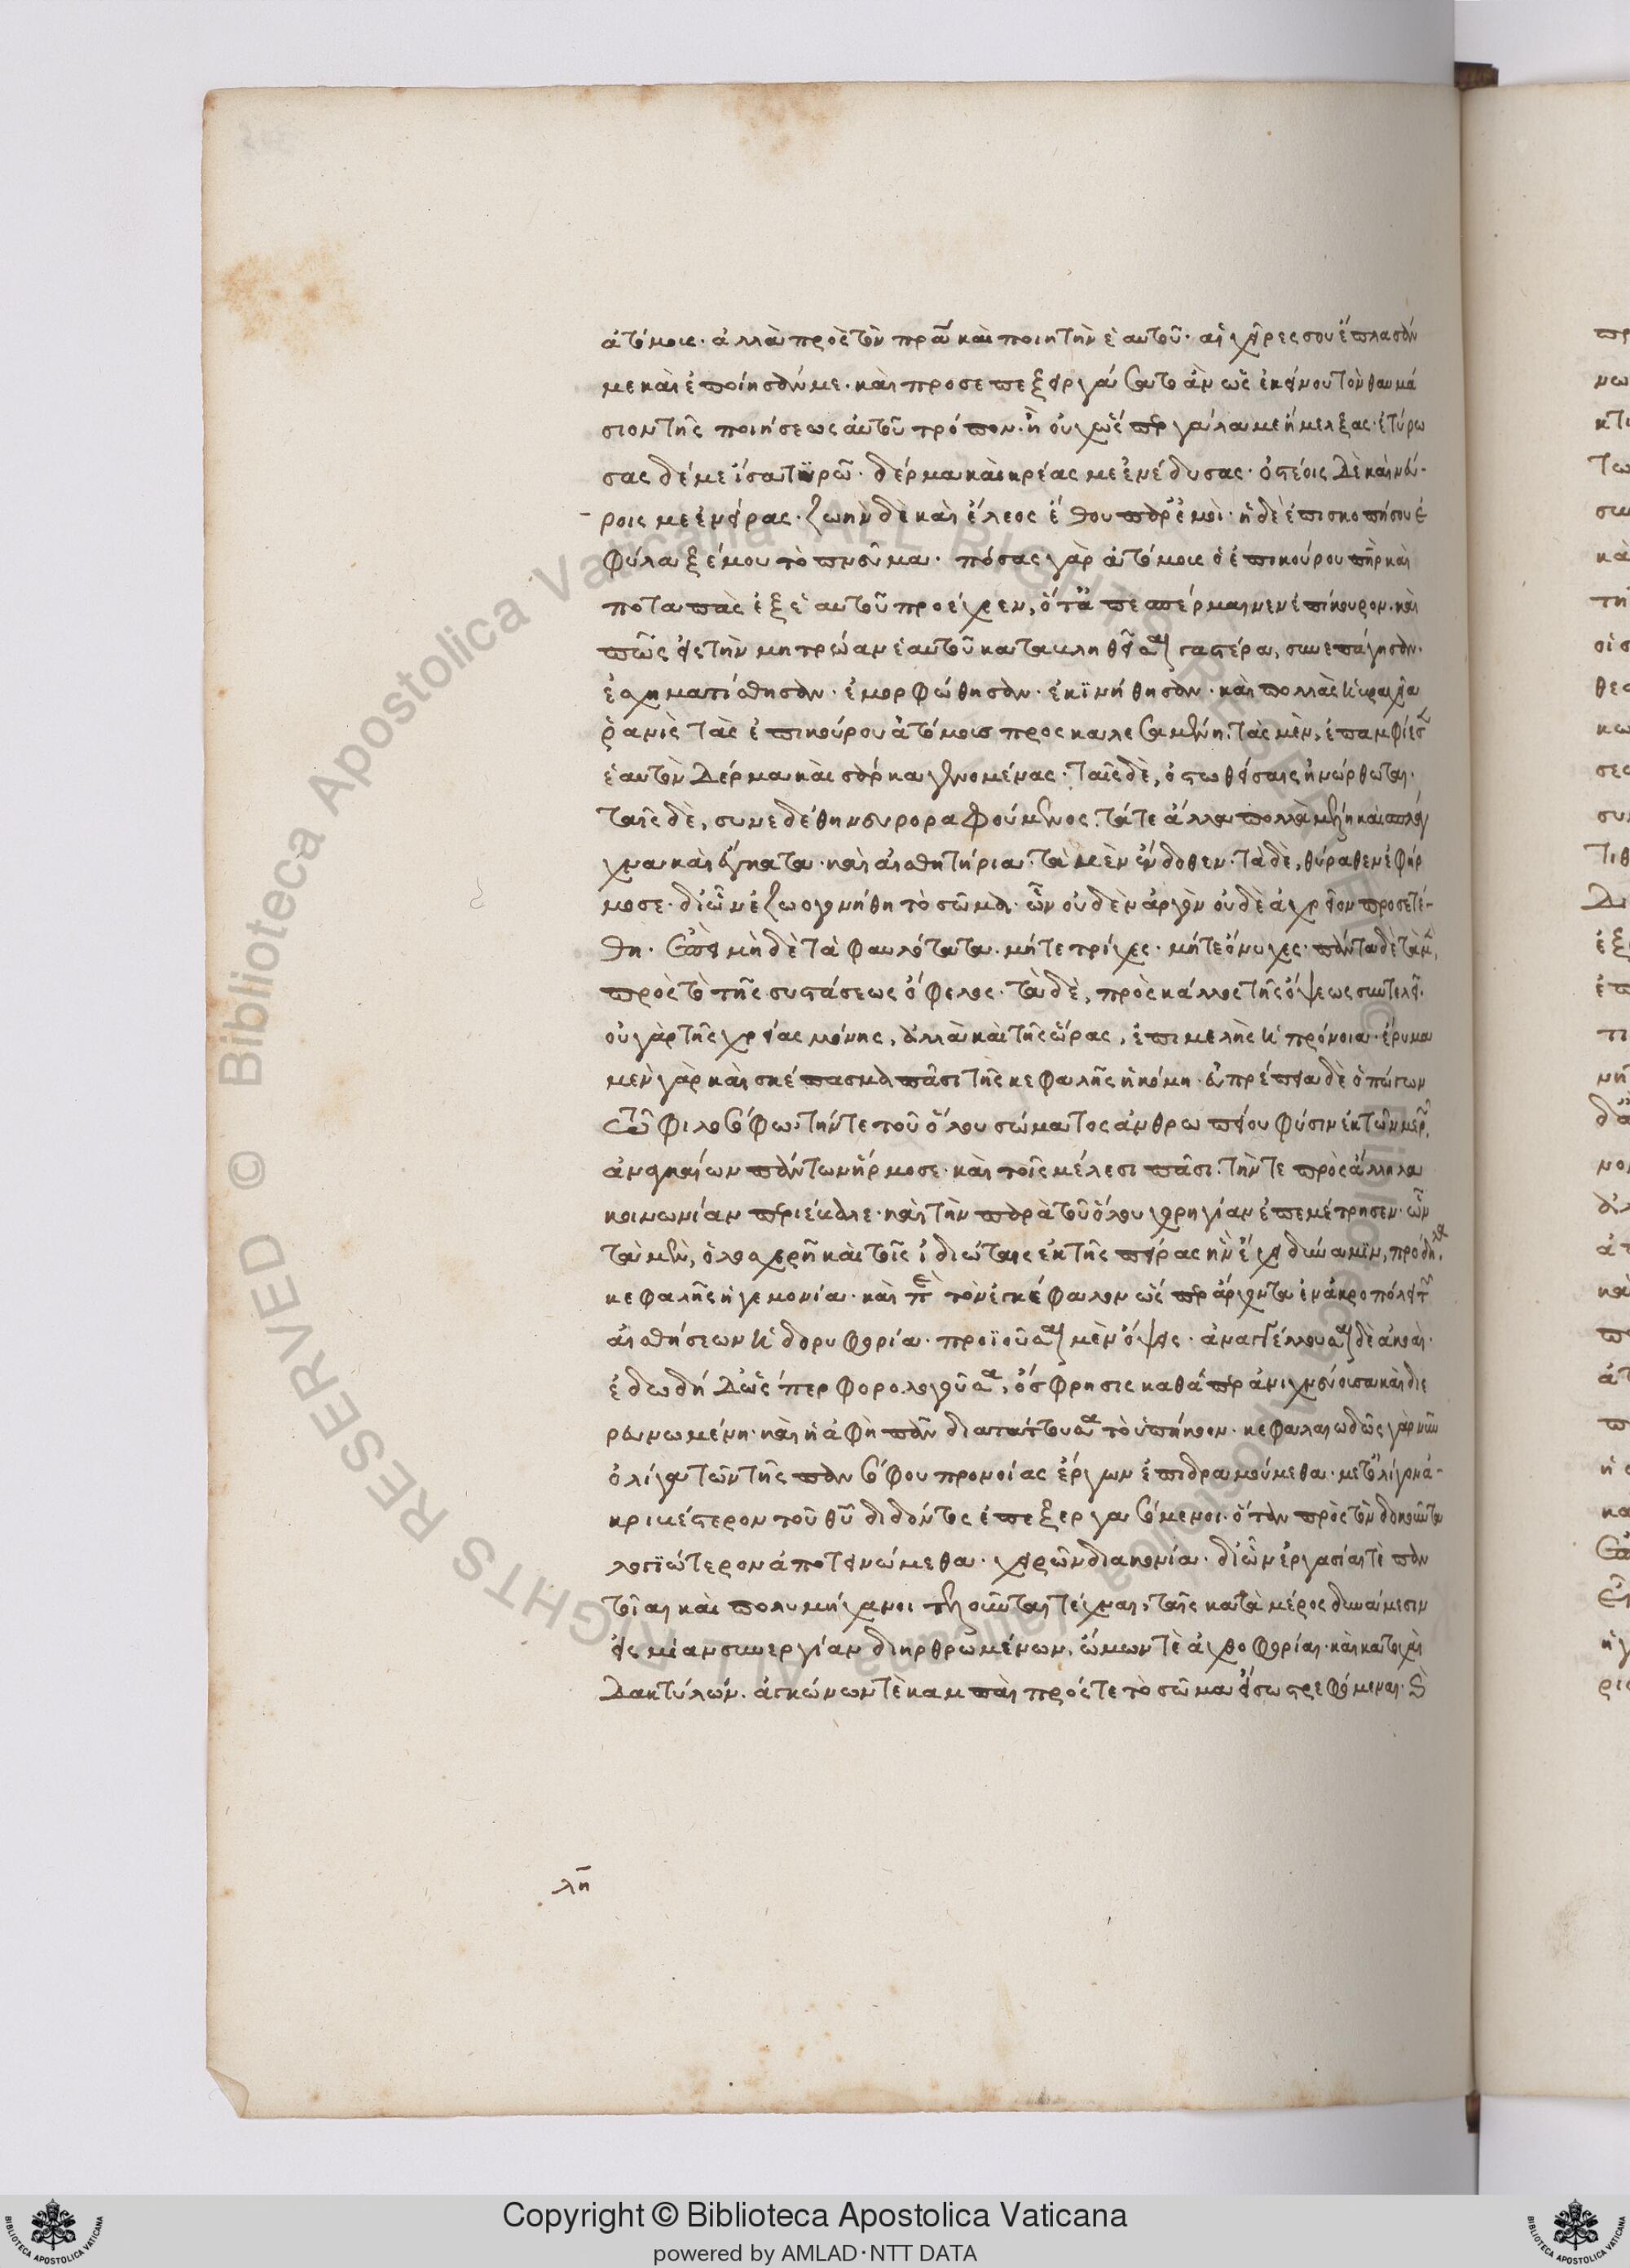 ἀτόμοις· ἀλλὰ πρὸς τὸν πρα καὶ ποιητὴν ἑαυτοῦ· αἱ χεῖρές σου ἔπλασάν
με καὶ ἐποίησάν με· καὶ προσεπεξειργάσατο ἂν ὡς ἐκείνου τὸν θαυμά
σιον τῆς ποιήσεως αὐτοῦ τρόπον· ἢ οὐχ ὥσπερ γάλα με ἤμελξας· ἐτύρω
σας δέ με ἴσα τυρῶ· δέρμα καὶ κρέας με ἐνέδυσας· ὀστέοις δὲ καὶ νεύ-
ροις με ἐνείρας· ζωὴν δὲ καὶ ἔλεος ἔθου παρ' ἐμοί· ἡ δὲ ἐπισκοπή σου ἐ
φύλαξέ μου τὸ πνεῦμα· πόσας γὰρ ἀτόμους ὁ ἐπικούρου πὴρ καὶ
ποταπὰς ἐξ ἑαυτοῦ προέχεεν, ὅτ ἀπεσπέρμαινεν ἐπίκουρον· καὶ
πῶς εἰς τὴν μητρώαν ἑαυτοῦ κατακληθεῖσαι γαστέρα, συνεπάγησαν·
ἐσχηματίσθησαν· ἐμορφώθησαν· ἐκινήθησαν· καὶ πολλὰς ἡ βραχεῖα
ῥανὶς τὰς ἐπικούρου ἀτόμους προσκαλεσαμένη· τὰς μὲν, ἐπαμφίεσ
ἑαυτὸν δέρμα καὶ σάρκα γενομένας· ταῖς δὲ, ὀστωθείσαις ἠνώρθωται·
ταῖς δὲ, συνεδέθη νευρορραφούμενος· τά τε ἄλλα πολλὰ μέλη καὶ σπλάγ
χνα καὶ ἔγκατα· καὶ αἰσθητήρια· τὰ μὲν ἔνδοθεν· τὰ δὲ, θύραθεν ἐφήρ
μοσε· δι' ὧν ἐζωογονήθη τὸ σῶμα· ὧν οὐδὲν ἀργὸν οὐδὲ ἀχρεῖον προσετέ-
θη· ἐπεὶ μὴ δὲ τὰ φαυλότατα· μήτε τρίχες· μήτε ὄνυχες· πάντα δὲ τὰ μ,
πρὸς τὸ τῆς συστάσεως ὄφελος· τὰ δὲ, πρὸς κάλλος τῆς ὄψεως συντελεῖ·
οὐ γὰρ τῆς χρείας μόνης, ἀλλὰ καὶ τῆς ὥρας, ἐπιμελὴς ἡ πρόνοια· ἔρυμα
μὲν γὰρ καὶ σκέπασμα πᾶσι τῆς κεφαλῆς ἡ κόμη· εὐπρέπεια δὲ ὁ πώγων
τῶ φιλοσόφω· τήν τε τοῦ ὅλου σώματος ἀνθρωπείου φύσιν ἐκ τῶν μερ,
ἀναγκαίων πάντων ἥρμοσε· καὶ τοῖς μέλεσι πᾶσι· τήν τε πρὸς ἄλληλα
κοινωνίαν περιέβαλε· καὶ τὴν παρὰ τοῦ ὅλου χορηγίαν ἐπεμέτρησεν· ὧν
τὰ μὲν, ὁλοσχερῆ καὶ τοῖς ἰδιώταις ἐκ τῆς πείρας ἣν ἔχει δύναμιν, πρόδηλα,
κεφαλῆς ἡγεμονία· καὶ πε τὸν ἐγκέφαλον ὥσπερ ἄρχοντα ἐν ἀκροπόλει τ
αἰσθήσεων ἡ δορυφορία· προϊοῦσαι μὲν ὄψεις· ἀναγγέλλουσαι δὲ ἀκοαί·
ἐδωδὴ δ' ὥσπερ φορολογοῦσα, ὄσφρησις καθάπερ ἀνιχνεύουσα καὶ διε
ρευνωμένη· καὶ ἡ ἁφὴ πᾶν διατάττουσα τὸ ὑπήκοον· κεφαλαιωδῶς γὰρ νῦν
ὀλίγα τῶν τῆς πανσόφου προνοίας ἔργων ἐπιδραμούμεθα· μετ' ὀλίγον ἀ-
κριβέστερον τοῦ θυ διδόντος ἐπεξεργασόμενοι· ὅταν πρὸς τὸν δοκοῦντα
λογιώτερον ἀποτεινώμεθα· χειρῶν διακονία· δι' ὧν ἐργασίαι τὲ παν
τοῖαι καὶ πολυμήχανοι τελοῦνται τέχναι, ταῖς κατὰ μέρος δυνάμεσιν
εἰς μίαν συνεργίαν διηρθρωμένων, ὤμων τὲ ἀχθοφορίαι· καὶ κατοχαὶ
δακτύλων· ἀγκώνων τὲ καμπαὶ πρός τε τὸ σῶμα εἴσω στρεφόμεναι· 
λη
Copyright © Biblioteca Apostolica Vaticana
powered by AMLAD·NTT DATA